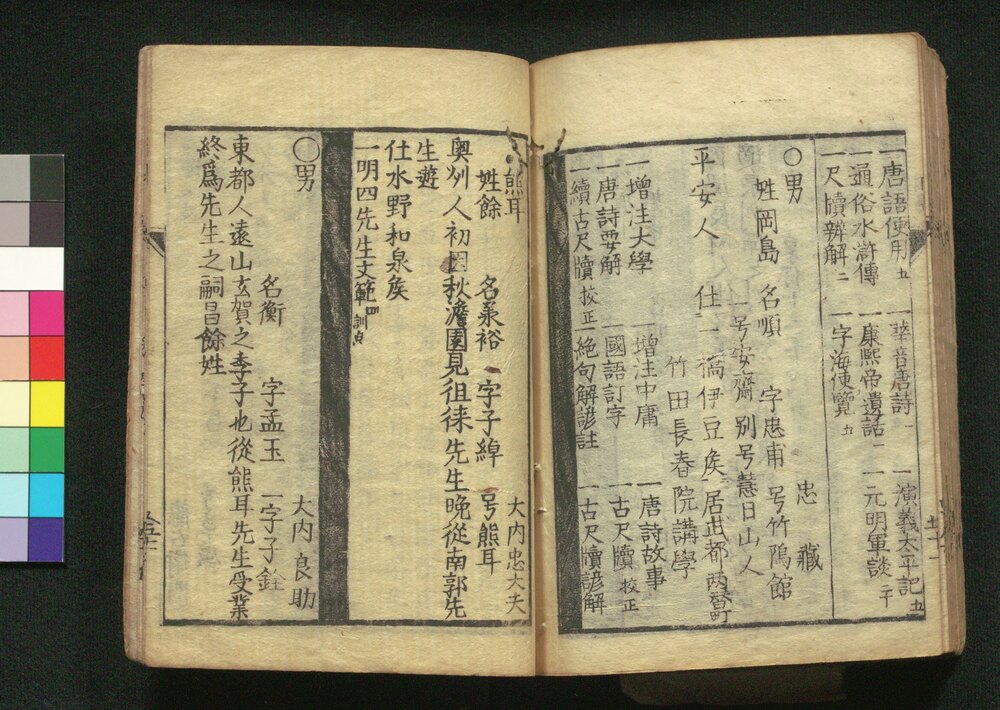 一唐語便用 五 一華音唐詩 一 一演義太平記 五
一通俗水滸傳 一康熙帝遺話 一 一元明軍談 二十
一尺牘辨解 二 一字海便覽 五
〇男 忠藏
姓岡島 名順 字忠甫 号竹隝館
一号安齋 別号慧日山人
平安人 仕一橋伊豆矦 居此都両替町
竹田長春院講学
一増注大学 一増注中庸 一唐詩故事
一唐詩要解 一國語訂字 一古尺牘 校正
一續古尺牘 校正 一絶句解諺註 一古尺牘諺解
熊耳 大内忠大夫
姓餘 名承裕 一字子綽 号熊耳
奥州人初因秋澹園見徂徠先生晩從南郭先
生遊
仕水野和泉矦
一明四先生文範 四 訓点
〇男 大内良助
名衡 字孟玉 一字子銓
東都人遠山玄賀之季子也從熊耳先生受業
終為先生之嗣昌餘姓